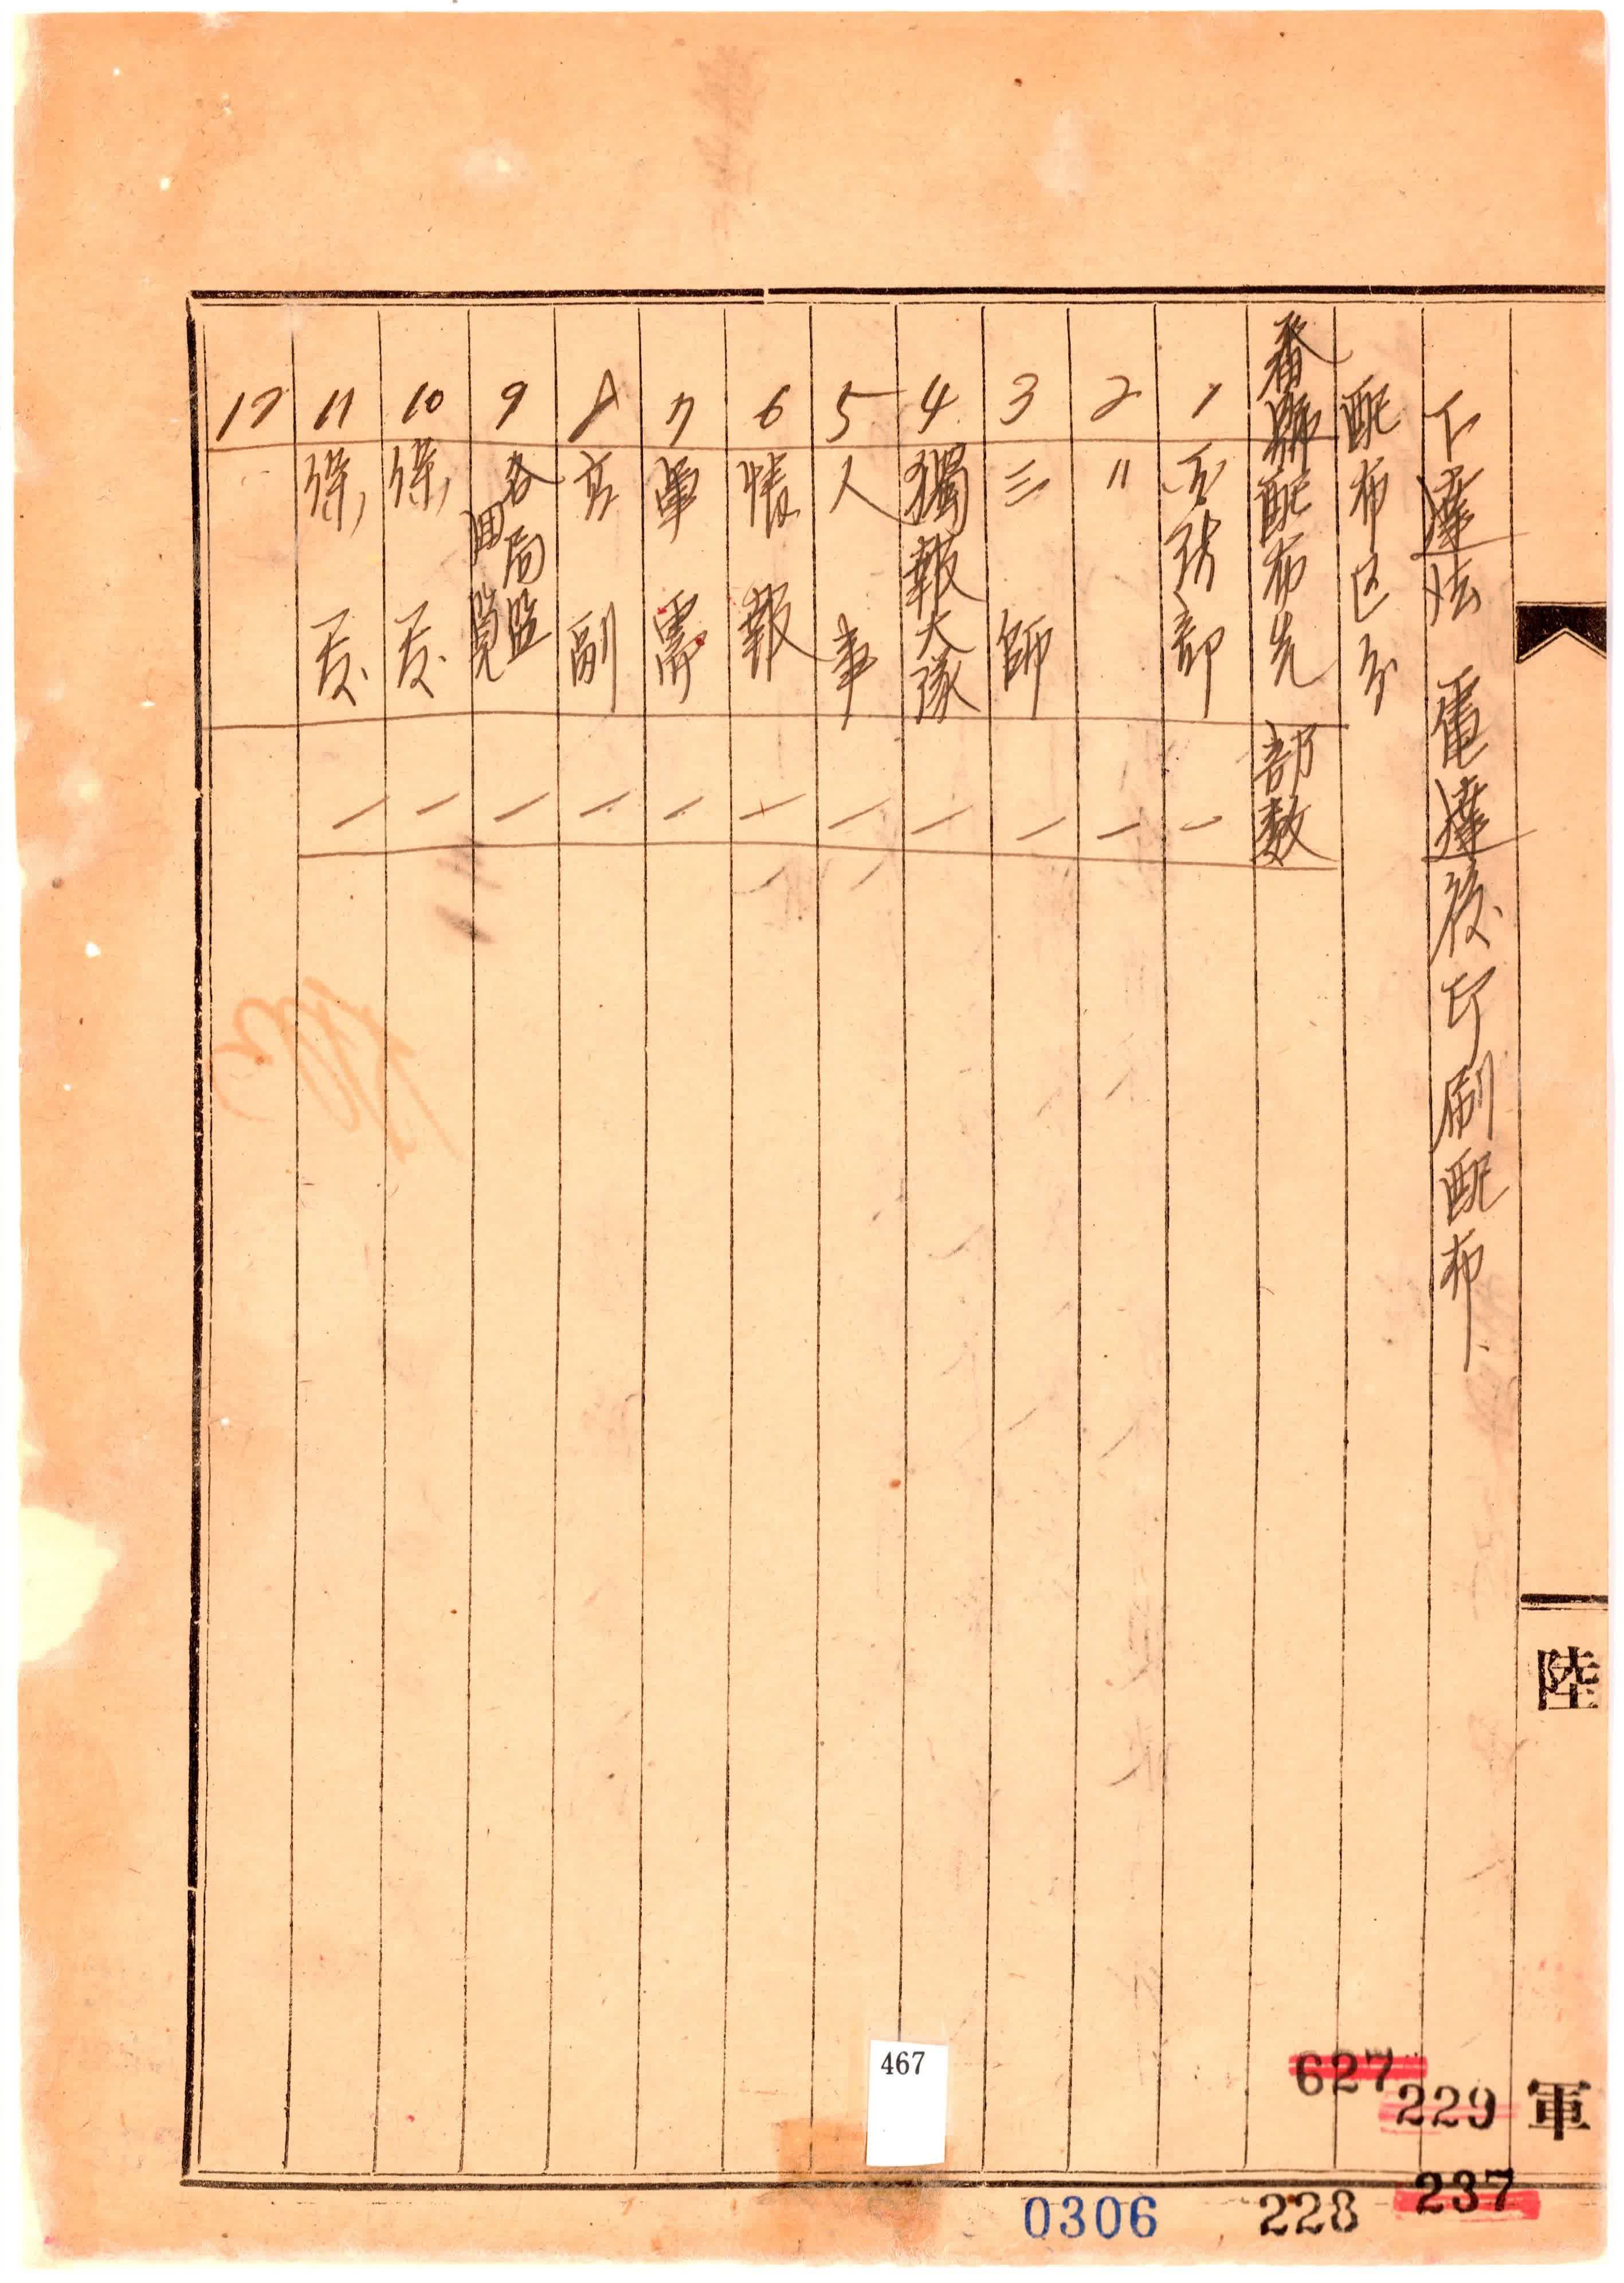 下達法 電達後印刷配布
配布区分
番號 配布先 部数
1 部 一
2 〃 一
3 三師 一
4 獨報大隊 一
5 人事 一
6 情報 一
7 軍需 一
8 高副 一
9 各局監 回覧 一
10 一
11 一
12
陸
軍
467
627
229
237
228
0306